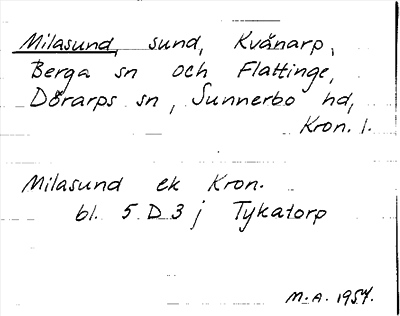 Milasund, sund, Kvånarp,
Berga sn och Flattinge,
Dörarps sn, Sunnerbo hd,
Kron. l.
Milasund ek Kron.
bl. 5 D 3 j Tykatorp
M.A. 1954.